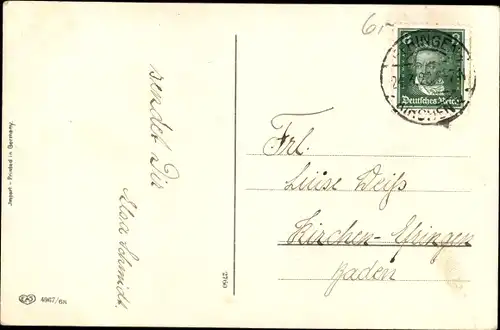 sendet Dir
Elsa Schmidt.
Import - Printed in Germany.
4967/68
2760
6,-
8
Deutsches Reich
KIRCHEN
Frl.
Luise Weiß
Kirchen-Efringen
Baden